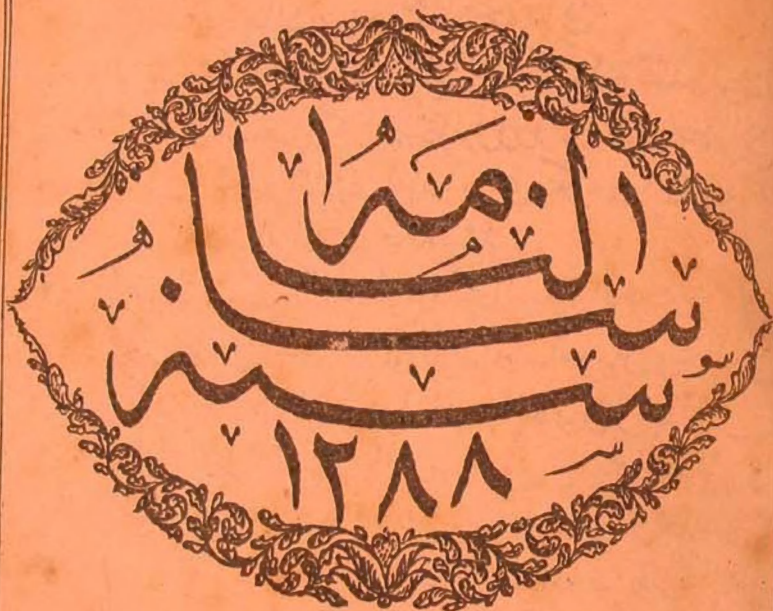 سالنامه
سنه
١٢٨٨